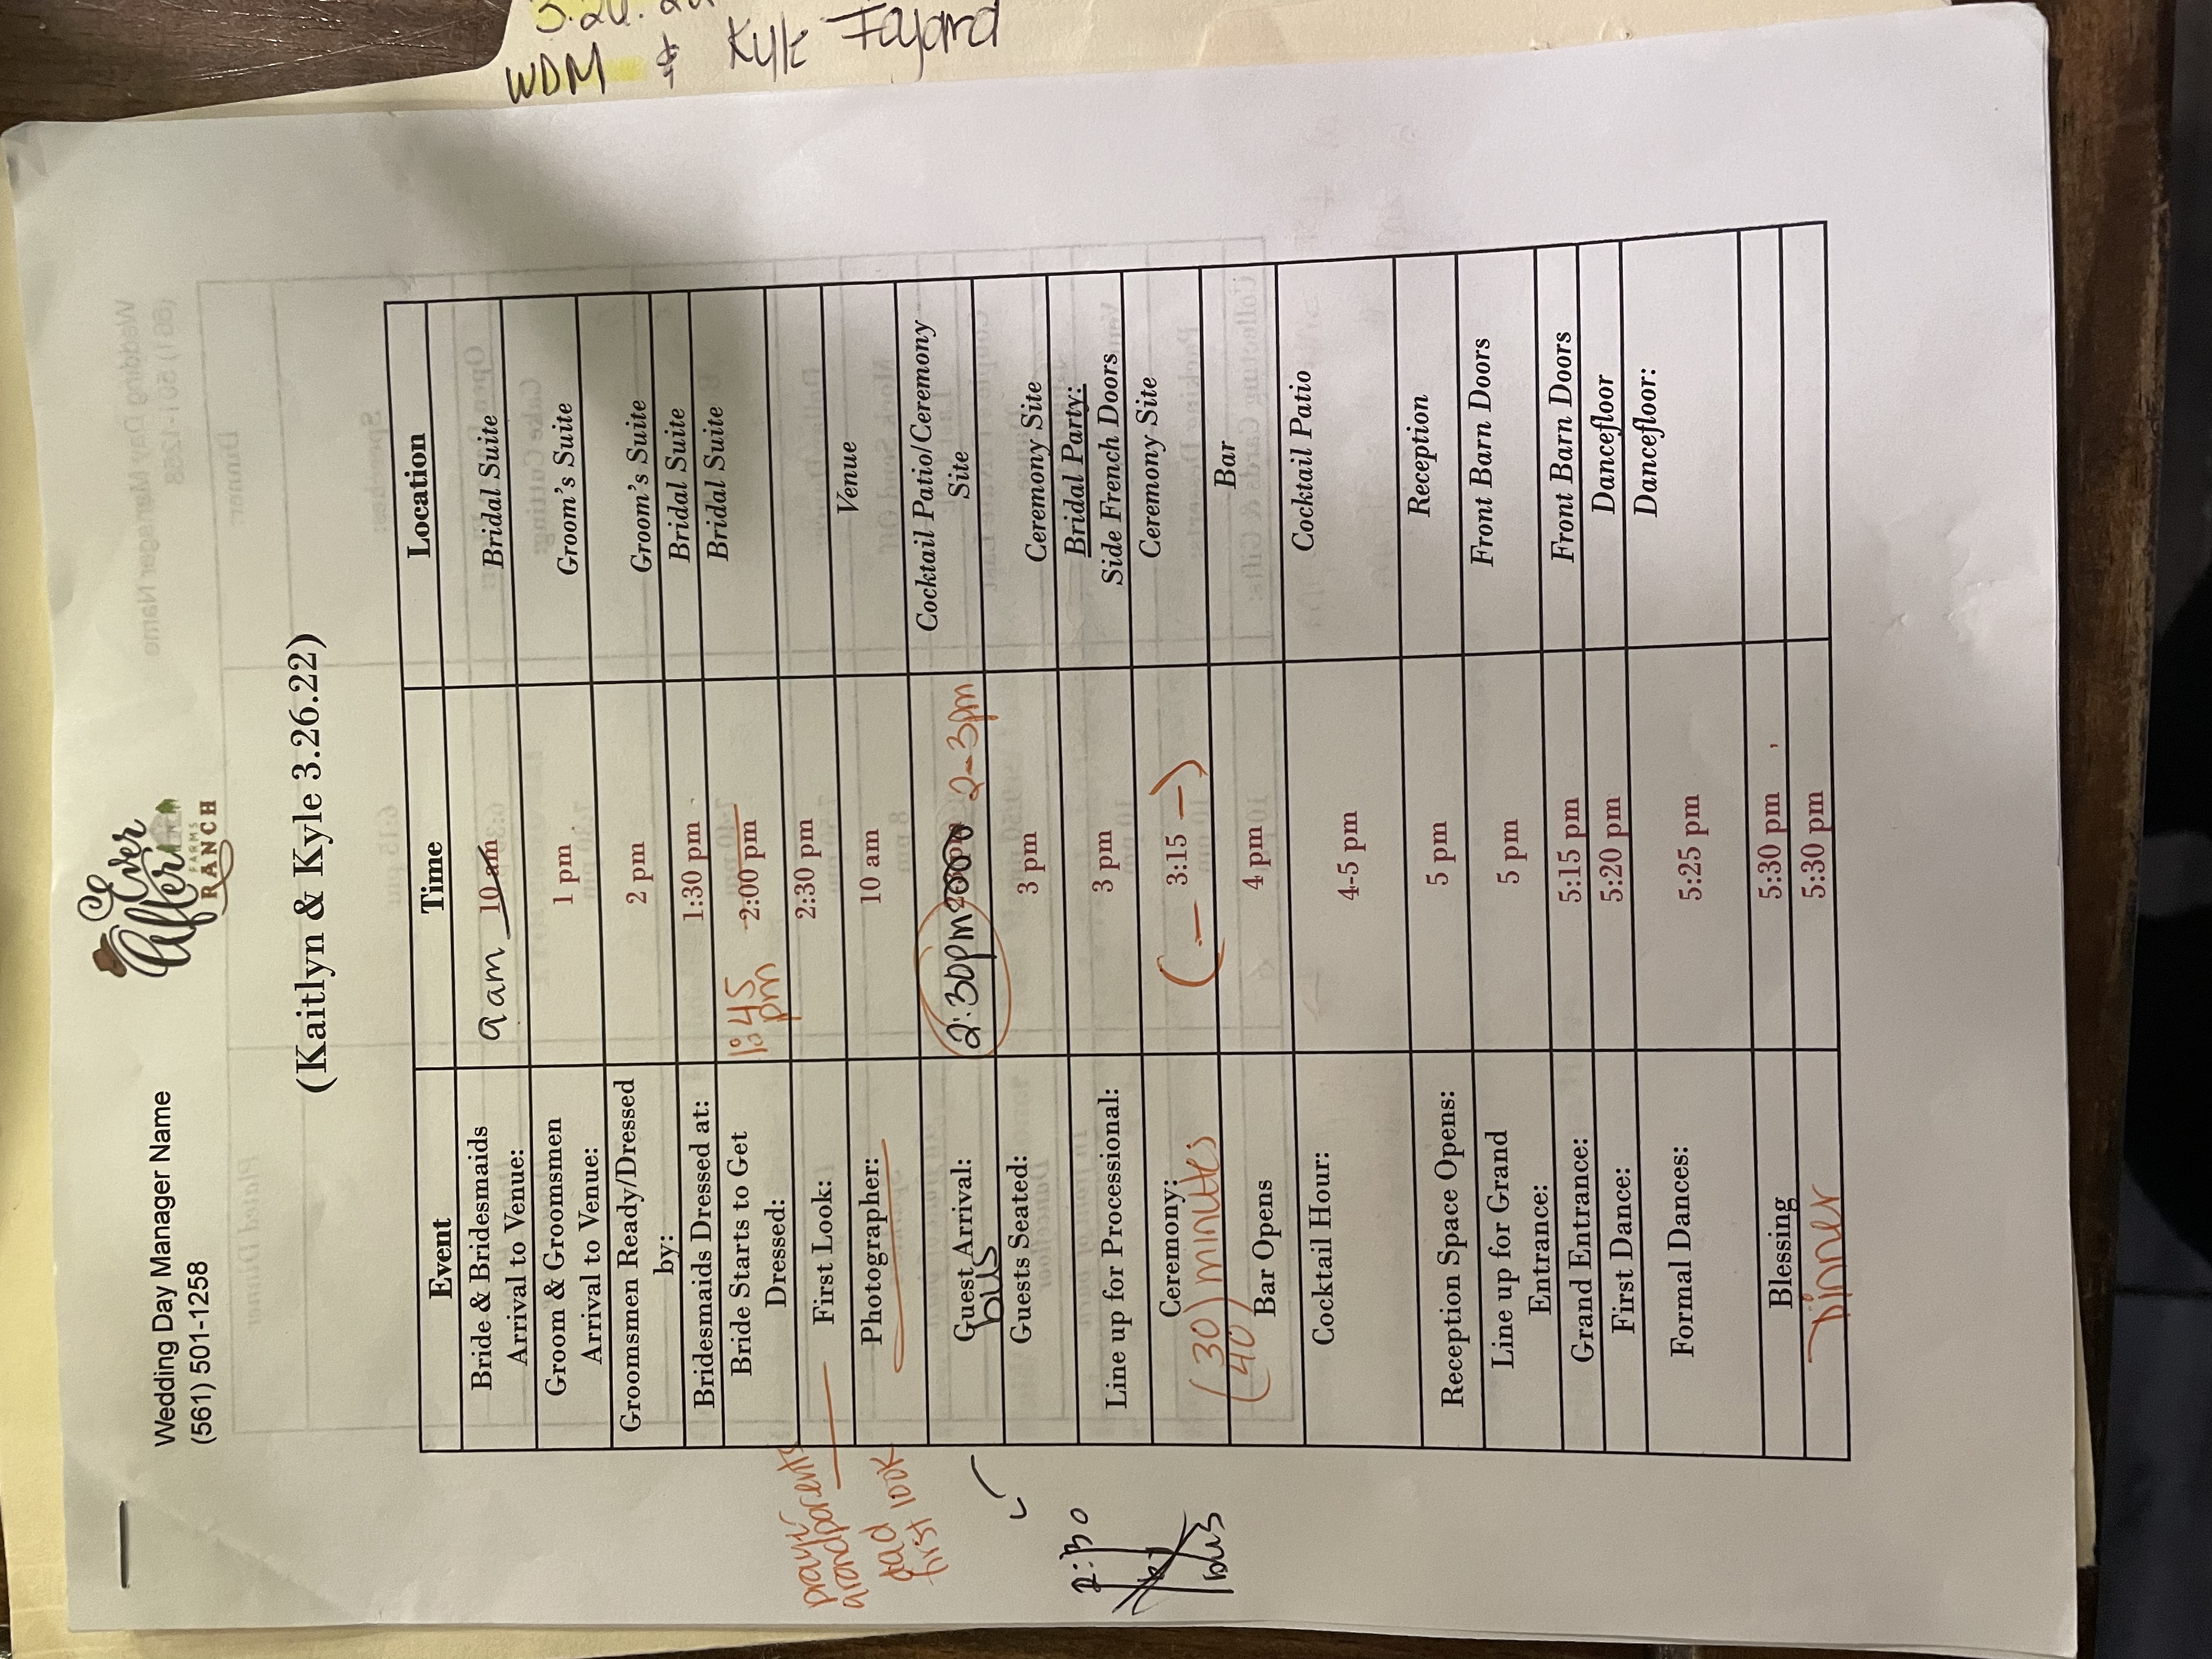 3.26.22
WDM & Kyle Fayard
Wedding Day Manager Name
(561) 501-1258
Ever After
FARMS
RANCH
(Kaitlyn & Kyle 3.26.22)
Event Time Location
Bride & Bridesmaids Arrival to Venue: 9am 10 am Bridal Suite
Groom & Groomsmen Arrival to Venue: 1 pm Groom's Suite
Groomsmen Ready/Dressed by: 2 pm Groom's Suite
Bridesmaids Dressed at: 1:30 pm Bridal Suite
Bride Starts to Get Dressed: 1:45 pm 2:00 pm Bridal Suite
grandparents First Look: 2:30 pm
dad first look
Photographer: 10 am Venue
Guest Arrival: bus 2:30pm 2-3pm Cocktail Patio/Ceremony Site
Guests Seated: 3 pm Ceremony Site
2:30
bus
Line up for Processional: 3 pm Bridal Party: Side French Doors
Ceremony: (30) minutes (— 3:15 —) Ceremony Site
(40) Bar Opens 4 pm Bar
Cocktail Hour: 4-5 pm Cocktail Patio
Reception Space Opens: 5 pm Reception
Line up for Grand Entrance: 5 pm Front Barn Doors
Grand Entrance: 5:15 pm Front Barn Doors
First Dance: 5:20 pm Dancefloor
Formal Dances: 5:25 pm Dancefloor:
Blessing 5:30 pm
Dinner 5:30 pm